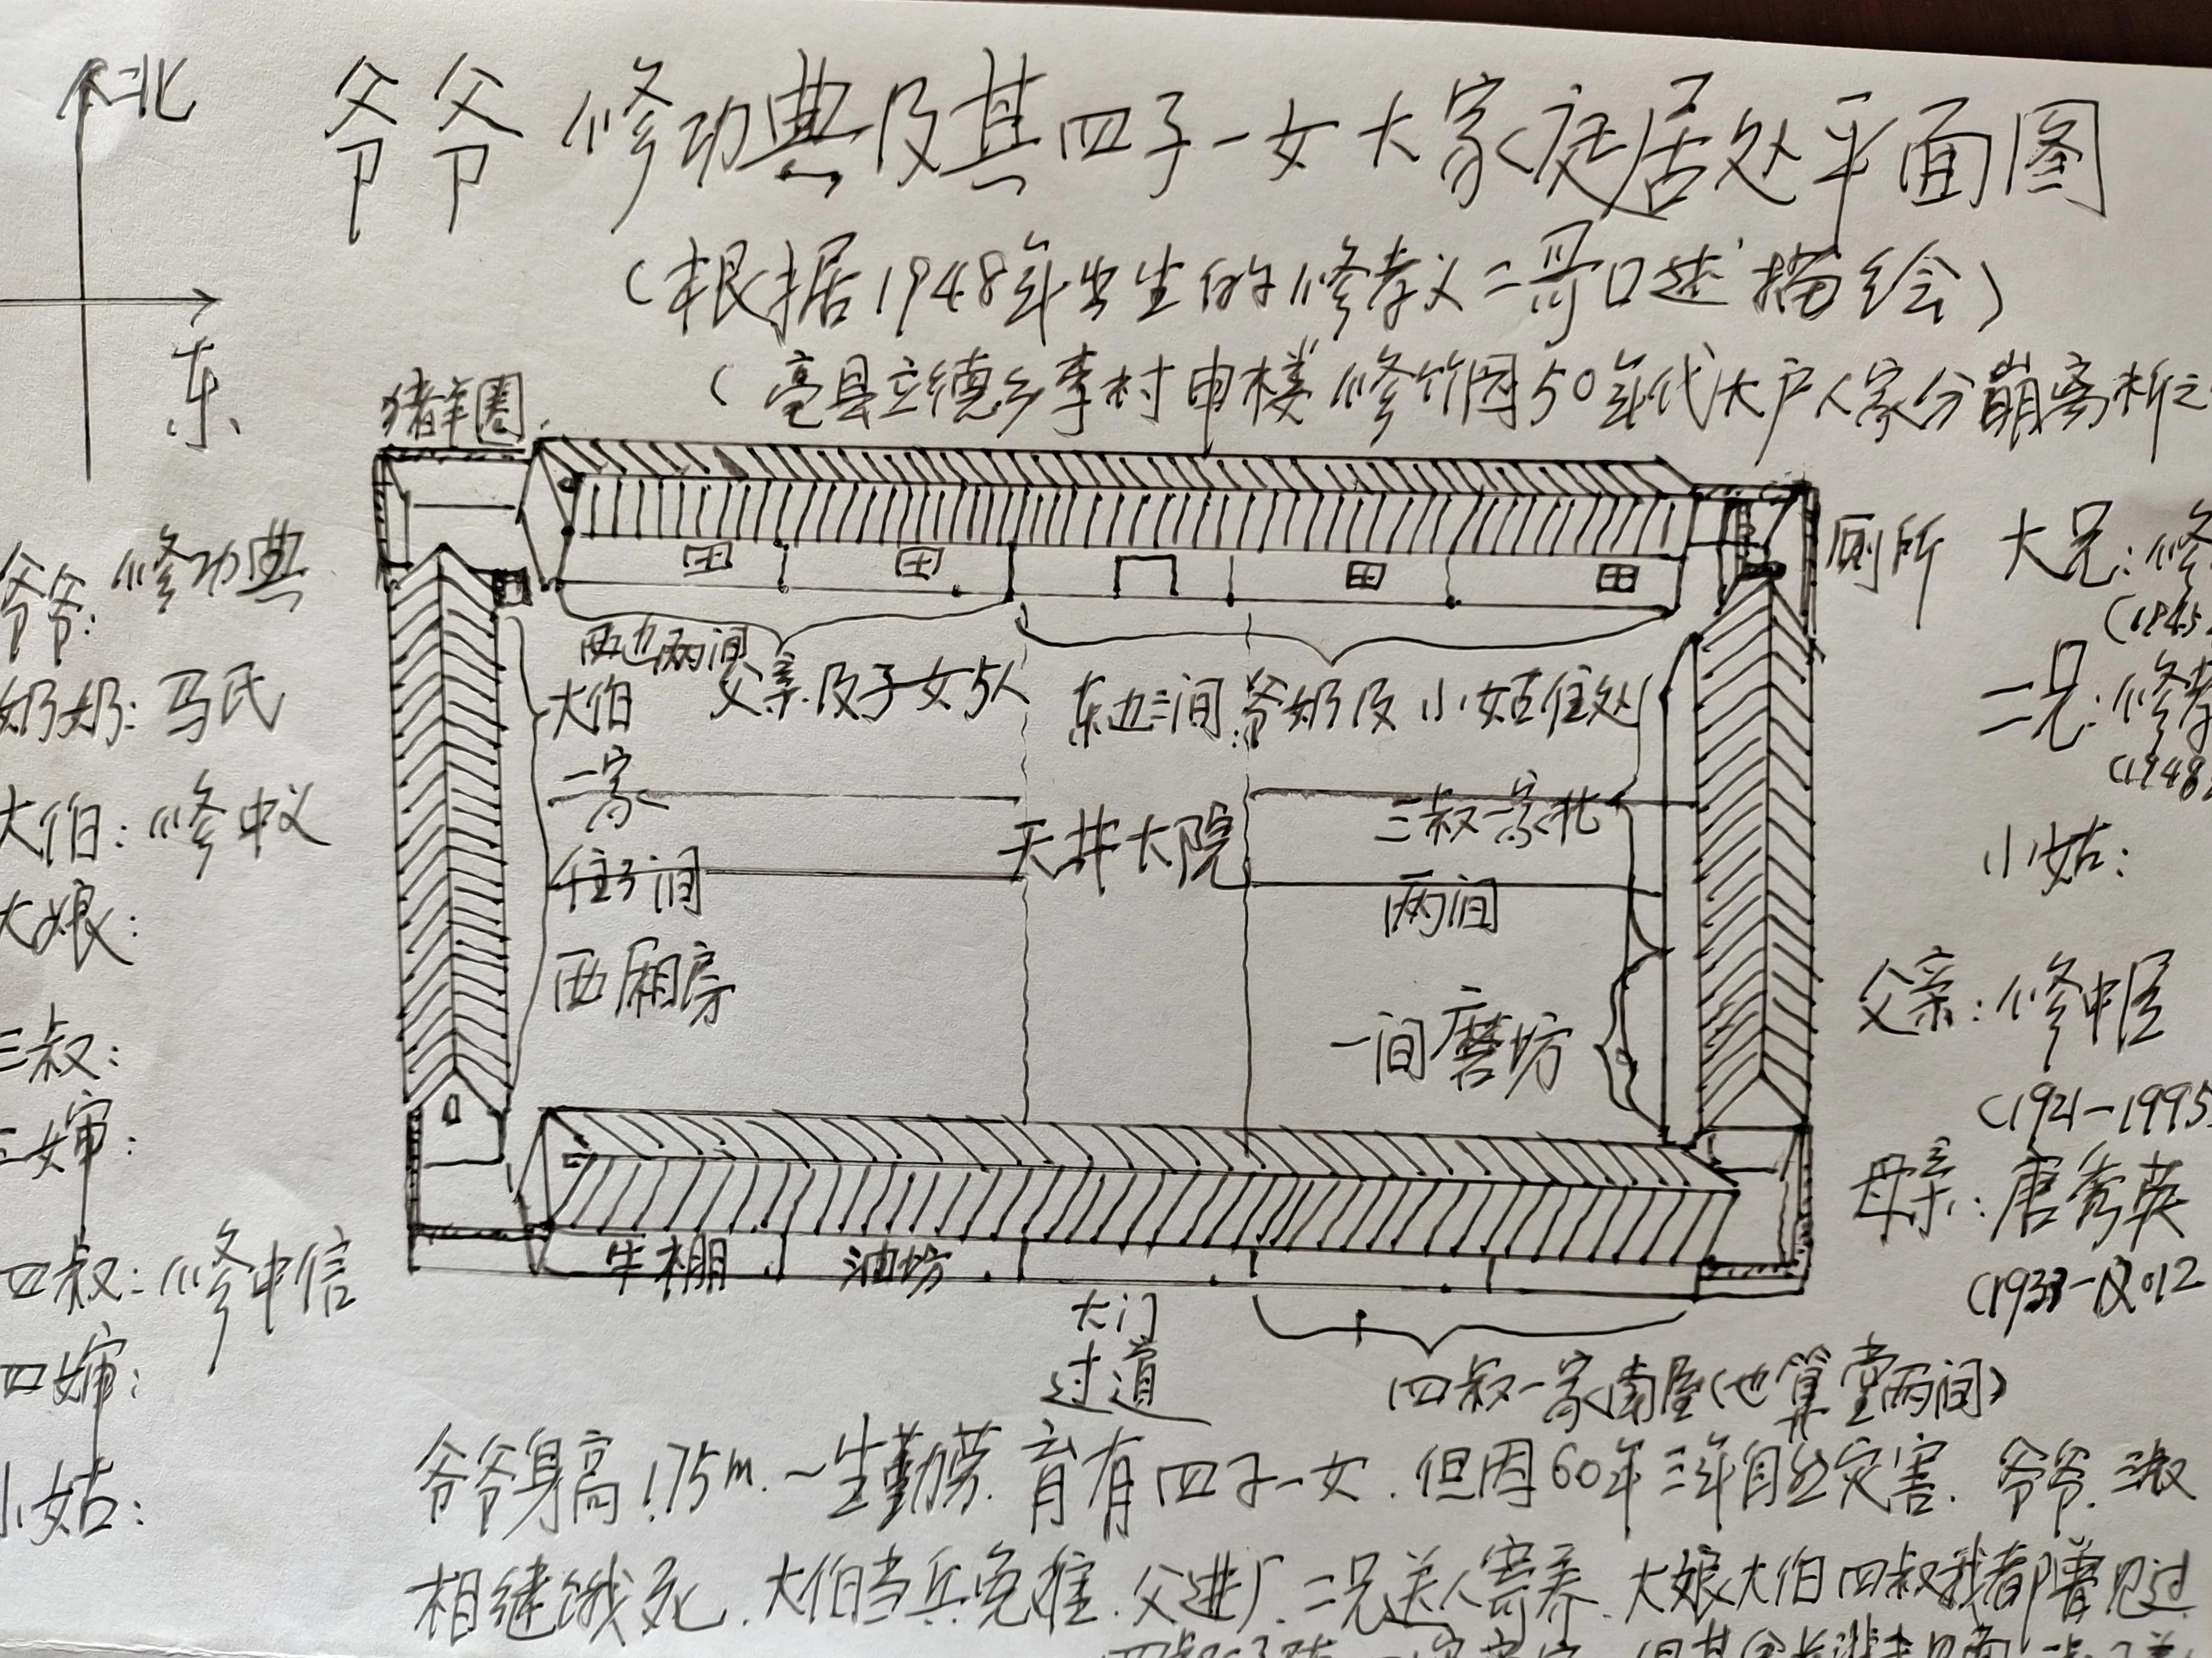 北
爷爷修功典及其四子一女大家庭居处平面图
(根据1948年出生的修孝义二哥口述描绘)
东
(亳县立德乡李村申楼修竹园50年代大户人家分崩离析之
猪羊圈
厕所
大兄:修
(1945
爷爷:修功典
二兄:修孝
(1948
西边两间
父亲及子女5人
东边三间:爷奶及小姑住处
奶奶:马氏
大伯
一家
住3间
西厢房
天井大院
三叔一家北
两间
一间磨坊
大伯:修中义
小姑:
大娘:
父亲:修中臣
(1921-1995
三叔:
三婶:
母亲:唐秀英
(1933-2012
四叔:修中信
牛棚
油坊
大门
过道
四叔一家南屋(也算堂两间)
四婶:
小姑:
爷爷身高1.75m.一生勤劳.育有四子一女.但因60年三年自然灾害.爷爷.三叔
相继饿死.大伯当兵免难.父进厂.二兄送人寄养.大娘大伯四叔我都曾见过